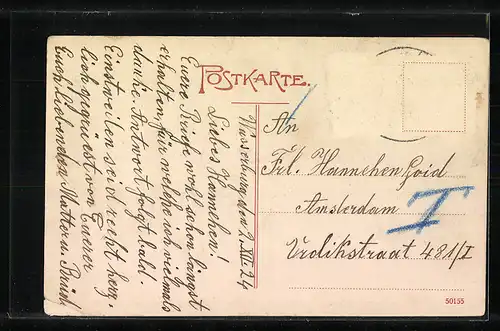 POSTKARTE.
Wasserburg den 2.VIII.24
Liebes Hannchen!
Euere Briefe wohl schon längst
erhalten, für welche ich vielmals
danke. Antwort folgt bald.
Einstweilen seid recht herz-
lich gegrüsst von Euerer
Euch liebenden Mutter u.
An
Frl. Hannchen
Amsterdam
I
481/I
50155